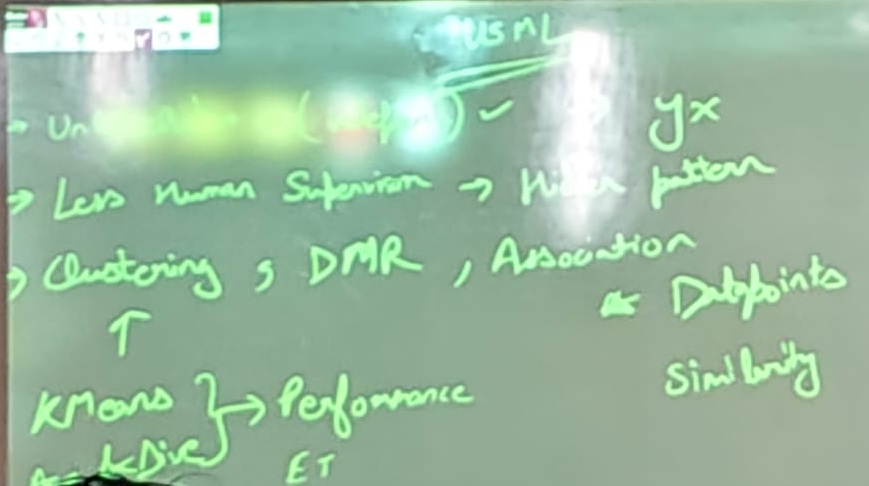 USML
→ Un ( ) ✓ yx
→ Less Human Supervision → Hidden pattern
→ Clustering , DMR , Association
↑ Datapoints
Similarity
KMeans } → Performance
ET